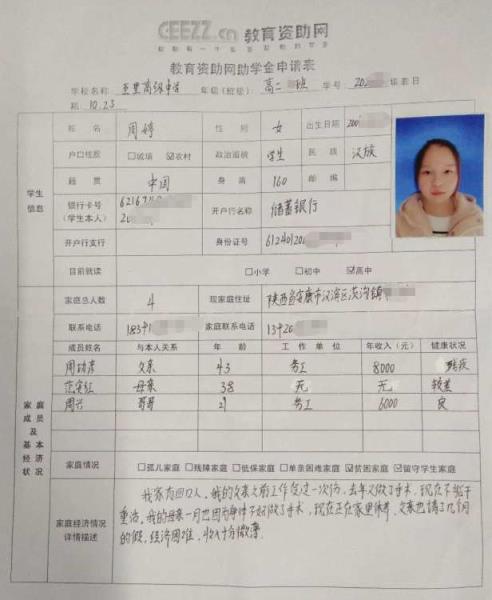 CEEZZ.cn 教育资助网
教育资助网助学金申请表
学校名称 至里高级中学 年级(班级) 高二 班 学号 20 填表日
期 10.23
学生信息
姓 名 周婷 性 别 女 出生日期 200
户口性质 □城镇 ☑农村 政治面貌 学生 民 族 汉族
籍 贯 中国 身 高 160 邮 编
银行卡号(学生本人) 621674 20 开户行名称 储蓄银行
开户行支行 身份证号 61240120
目前就读 □小学 □初中 ☑高中
家庭成员及基本经济状况
家庭总人数 4 现家庭住址 陕西省安康市汉滨区茨沟镇
联系电话 18391 家庭联系电话 13420
成员姓名 与本人关系 年 龄 工 作 单 位 年收入(元) 健康状况
周 父亲 43 务工 8000 残疾
母亲 38 无 无 较差
周兴 哥哥 21 务工 6000 良
家庭情况 □孤儿家庭 □残障家庭 □低保家庭 □单亲困难家庭 ☑贫困家庭 ☑留守学生家庭
家庭经济情况详情描述
我家有四口人,我的父亲之前工作受过一次伤,去年又做了手术,现在不能干
重活。我的母亲一月也因为身体不好做了手术,现在正在家里休养,父亲也请了几个月
的假,经济困难,收入十分微薄。